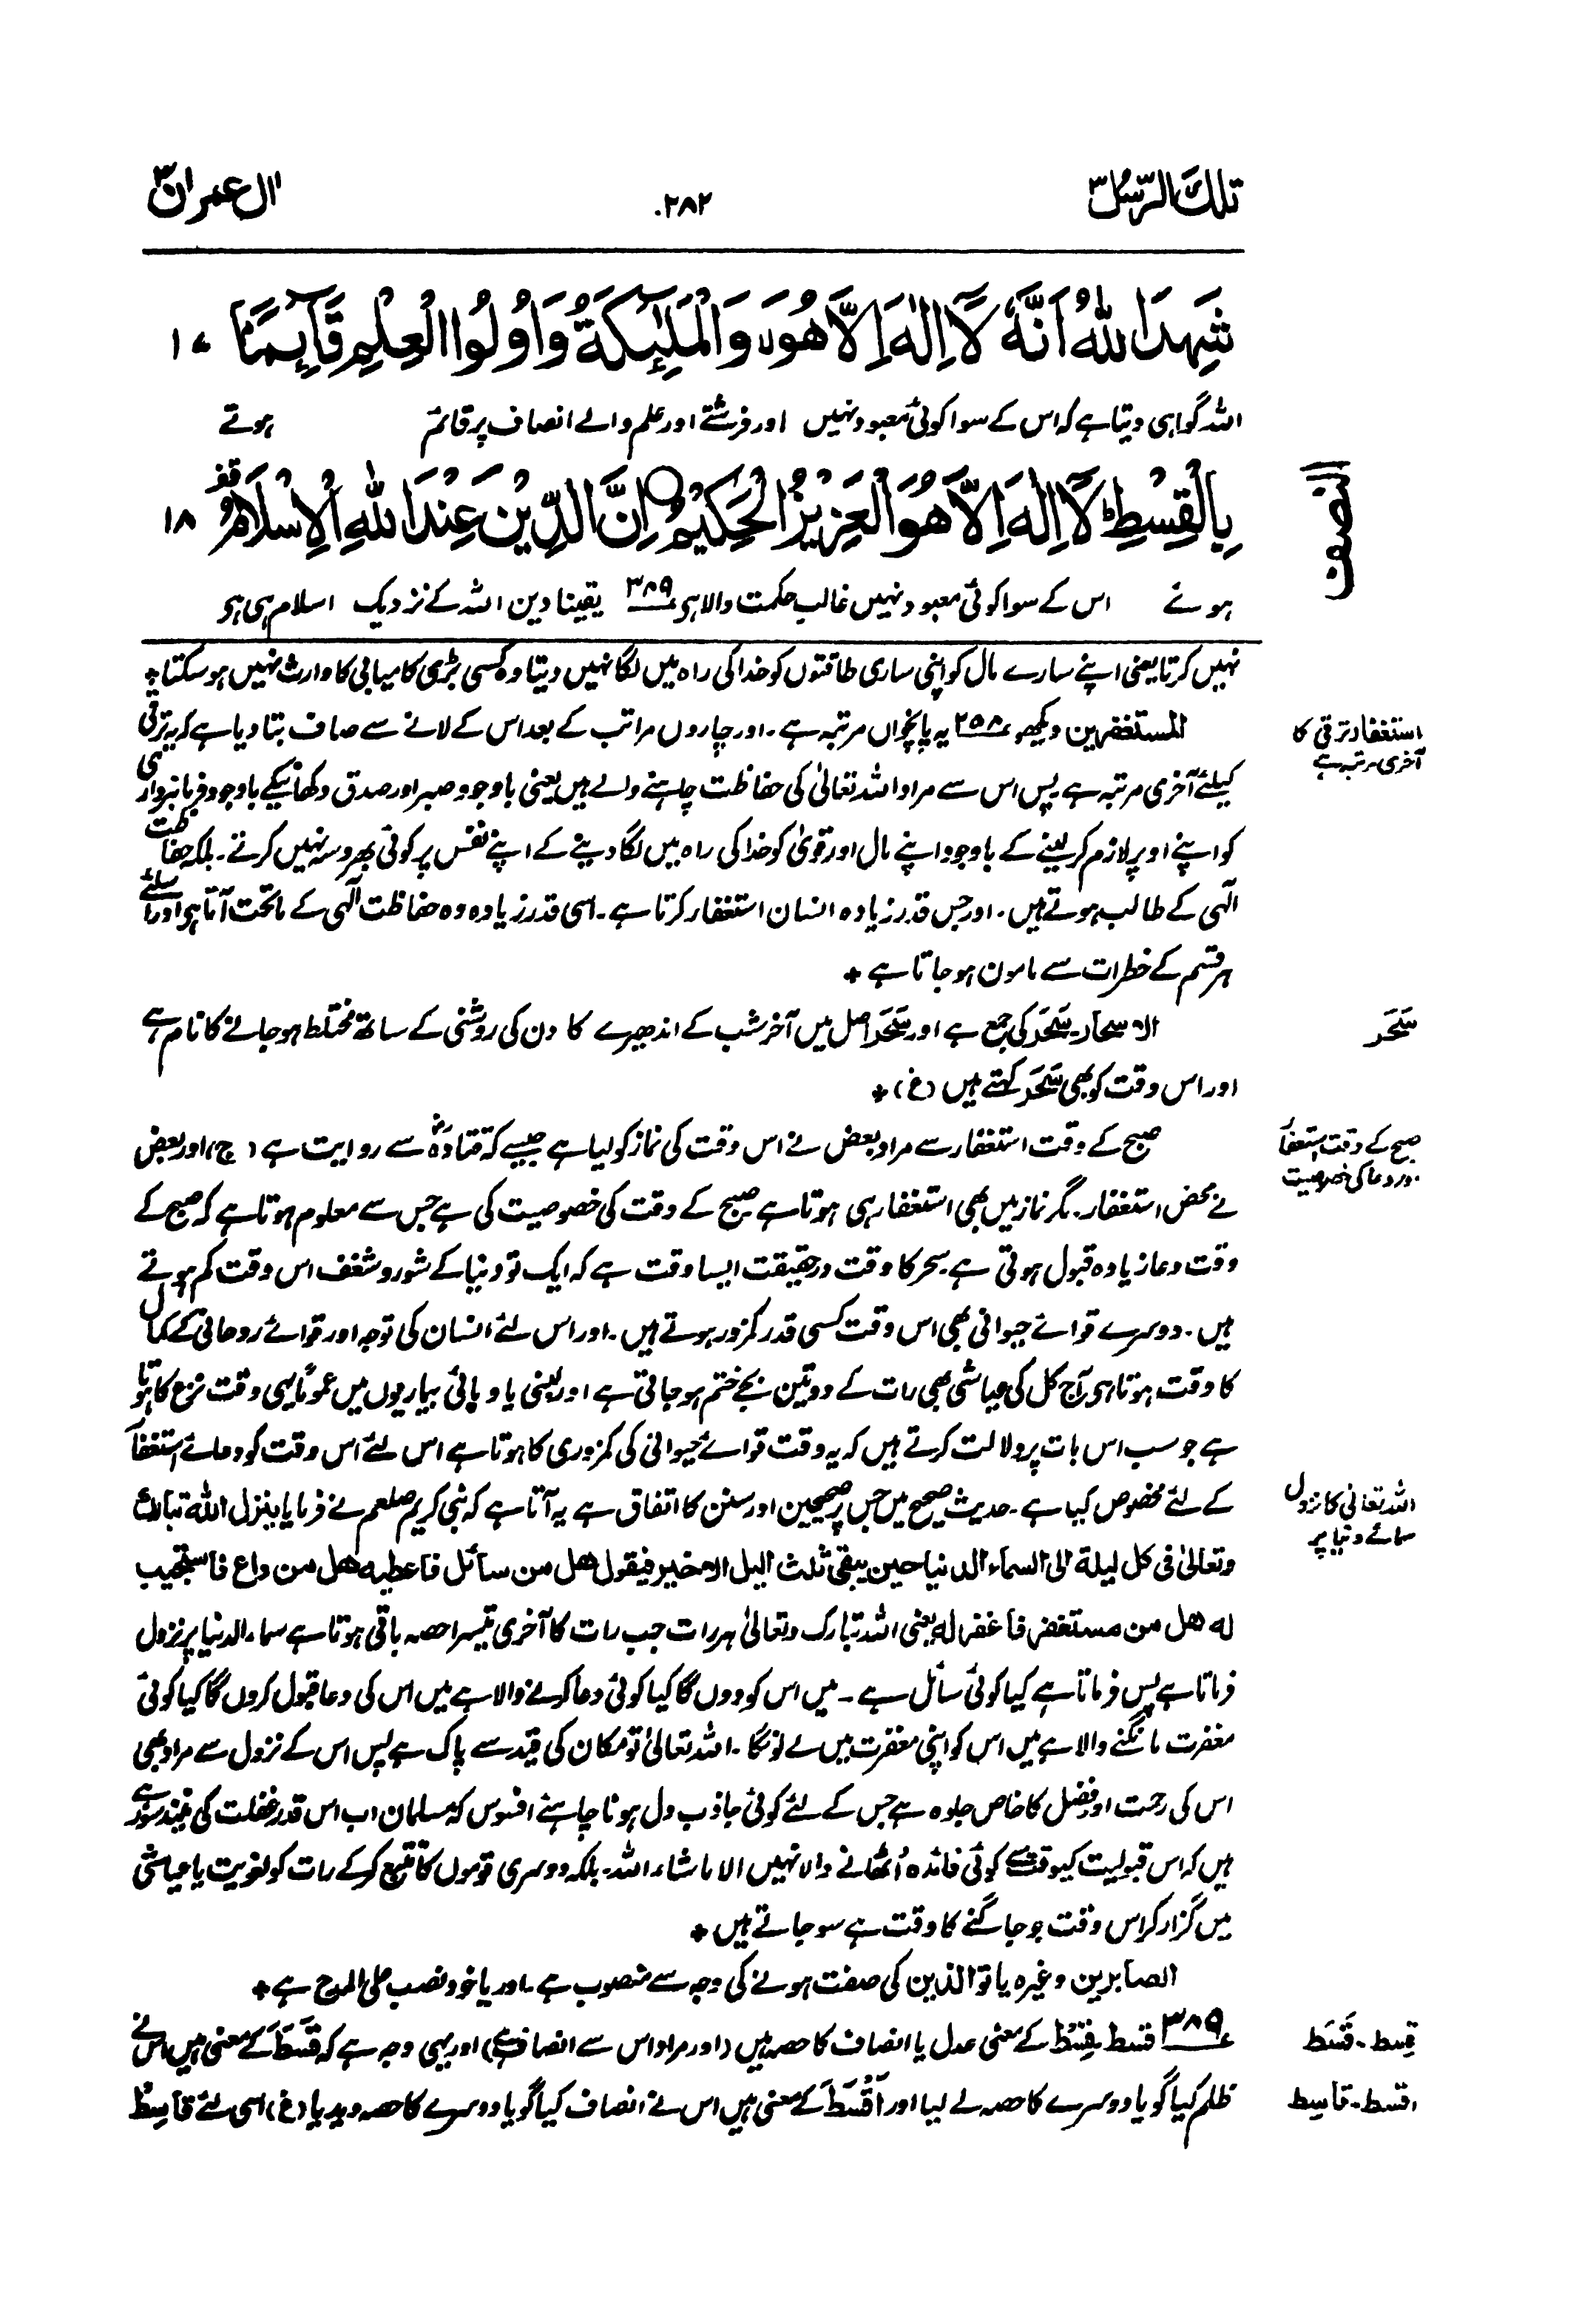 تلك الرسل ۳
۲۸۲
ال عمران ۳
شَهِدَ اللّٰهُ اَنَّهٗ لَآ اِلٰهَ اِلَّا هُوَ وَالْمَلٰٓئِكَةُ وَاُولُوا الْعِلْمِ قَآئِمًۢا ۱۷
اللہ گواہی دیتا ہے کہ اس کے سوا کوئی معبود نہیں اور فرشتے اور علم والے انصاف پر قائم ہوتے
النصف
بِالْقِسْطِ ؕ لَآ اِلٰهَ اِلَّا هُوَ الْعَزِيْزُ الْحَكِيْمُ ۝ اِنَّ الدِّيْنَ عِنْدَ اللّٰهِ الْاِسْلَامُ قف ۱۸
ہوئے اس کے سوا کوئی معبود نہیں غالب حکمت والا ہی ۳۸۹ یقینا دین اللہ کے نزدیک اسلام ہی ہی
نہیں کرتا یعنی اپنے سارے مال کو اپنی ساری طاقتوں کو خدا کی راہ میں لگا نہیں دیتا وہ کسی بڑی کامیابی کا وارث نہیں ہو سکتا *
استغفار ترقی کا
آخری مرتبہ ہے
المستغفرین دیکھو ۲۵۸ یہ پانچواں مرتبہ ہے۔ اور چاروں مراتب کے بعد اس کے لانے سے صاف بتا دیا ہے کہ یہ ترقی
کیلئے آخری مرتبہ ہے پس اس سے مراد اللہ تعالیٰ کی حفاظت چاہنے والے ہیں یعنی باوجود صبر اور صدق دکھانیکے باوجود فرمانبرداری
کو اپنے اوپر لازم کر لینے کے باوجود اپنے مال اور قویٰ کو خدا کی راہ میں لگا دینے کے اپنے نفس پر کوئی بھروسہ نہیں کرتے۔ بلکہ حفاظت
الٰہی کے طالب ہوتے ہیں۔ اور جس قدر زیادہ انسان استغفار کرتا ہے۔ اسی قدر زیادہ وہ حفاظت الٰہی کے ماتحت آتا ہی اور اسلئے
ہر قسم کے خطرات سے مامون ہو جاتا ہے *
سَحَر
الاسحار۔ سَحَر کی جمع ہے اور سَحَر اصل میں آخر شب کے اندھیرے کا دن کی روشنی کے ساتھ مختلط ہو جانے کا نام ہے
اور اس وقت کو بھی سَحَر کہتے ہیں (غ) *
صبح کے وقت استغفا
اور دعا کی خصوصیت
صبح کے وقت استغفار سے مراد بعض نے اس وقت کی نماز کو لیا ہے جیسے کہ قتادہؓ سے روایت ہے (ج) اور بعض
نے محض استغفار۔ مگر نماز میں بھی استغفار ہی ہوتا ہے صبح کے وقت کی خصوصیت کی ہے جس سے معلوم ہوتا ہے کہ صبح کے
وقت دعا زیادہ قبول ہوتی ہے۔ سحر کا وقت درحقیقت ایسا وقت ہے کہ ایک تو دنیا کے شور و شغف اس وقت کم ہوتے
ہیں۔ دوسرے قوائے حیوانی بھی اس وقت کسی قدر کمزور ہوتے ہیں۔ اور اس لئے انسان کی توجہ اور قوائے روحانی کے کمال
کا وقت ہوتا ہی آج کل کی عیاشی بھی رات کے دو تین بجے ختم ہو جاتی ہے اور لمبی یا وبائی بیماریوں میں عموماً یہی وقت نزع کا ہوتا
ہے جو سب اس بات پر دلالت کرتے ہیں کہ یہ وقت قوائے حیوانی کی کمزوری کا ہوتا ہے اس لئے اس وقت کو دعائے استغفا
اللہ تعالیٰ کا نزول
سمائے دنیا پر
کے لئے مخصوص کیا ہے۔ حدیث صحیح میں جس پر صحیحین اور سنن کا اتفاق ہے یہ آتا ہے کہ نبی کریم صلعم نے فرمایا ینزل اللہ تبارك
وتعالیٰ فی کل لیلة الی السماء الدنیا حین یبقی ثلث الیل الاخیر فیقول ھل من سائل فاعطیہ ھل من داع فاستجیب
لہ ھل من مستغفر فاغفر لہ یعنی اللہ تبارک وتعالیٰ ہر رات جب رات کا آخری تیسرا حصہ باقی ہوتا ہے سماء الدنیا پر نزول
فرماتا ہے پس فرماتا ہے کیا کوئی سائل ہے۔ میں اس کو دوں گا کیا کوئی دعا کرنے والا ہے میں اس کی دعا قبول کروں گا کیا کوئی
مغفرت مانگنے والا ہے میں اس کو اپنی مغفرت میں لے لونگا۔ اللہ تعالیٰ تو مکان کی قید سے پاک ہے پس اس کے نزول سے مراد بھی
اس کی رحمت اور فضل کا خاص جلوہ ہے جس کے لئے کوئی جاذب دل ہونا چاہئے افسوس کہ مسلمان اب اس قدر غفلت کی نیند سو رہے
ہیں کہ اس قبولیت کیوقت سے کوئی فائدہ اُٹھانے والا نہیں الا ماشاء اللہ۔ بلکہ دوسری قوموں کا تتبع کر کے رات کو لغویت یا عیاشی
میں گزار کر اس وقت جو جاگنے کا وقت ہے سو جاتے ہیں *
الصابرین وغیرہ یا تو الذین کی صفت ہونے کی وجہ سے منصوب ہے۔ اور یا خود نصب علی المدح ہے *
قِسط۔ قَسَط
۳۸۹ قسط۔ قِسْطٌ کے معنی عدل یا انصاف کا حصہ ہیں (اور مراد اس سے انصاف ہے) اور یہی وجہ ہے کہ قَسَطَ کے معنی ہیں اس نے
اقسط۔ قاسِط
ظلم کیا گویا دوسرے کا حصہ لے لیا اور اَقْسَطَ کے معنی ہیں اس نے انصاف کیا گویا دوسرے کا حصہ دیدیا (غ) اسی لئے قاسِطٌ